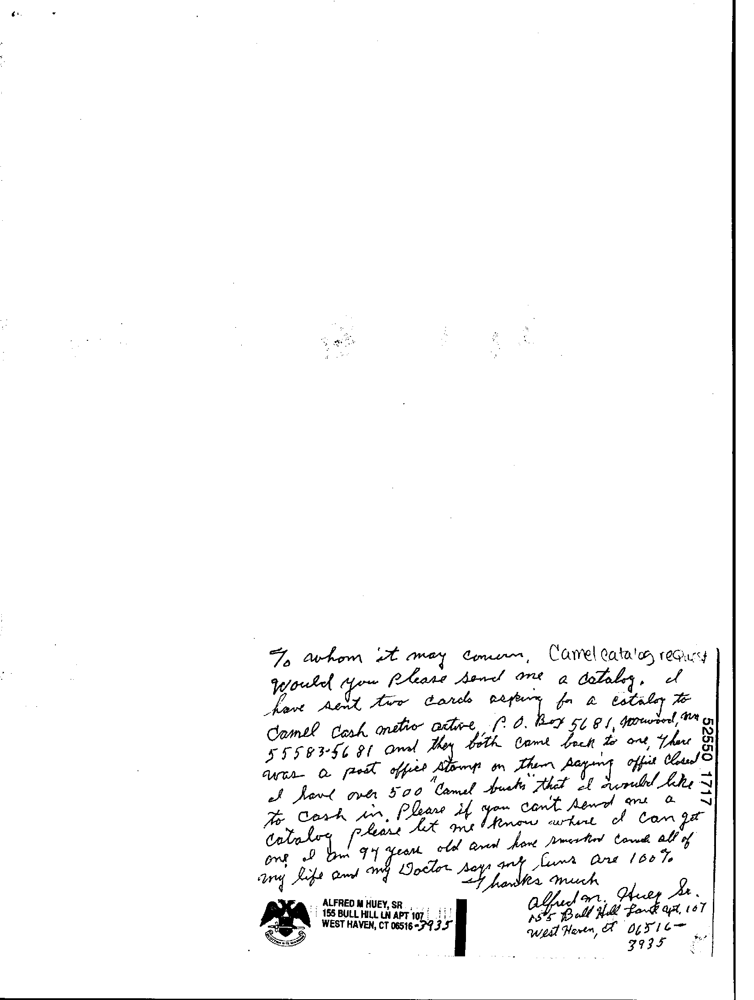 To whom it may concern, Camel catalog request
Would you Please send me a catalog. I
have sent two cards asking for a catalog to
Camel Cash metro active, P.O. Box 5681, Norwood, Mn
55583-5681 and they both came back to me, There
was a post office stamp on them saying office closed
I have over 500 "Camel bucks" that I would like
to cash in. Please if you can't send me a
catalog please let me know where I can get
one I am 94 years old and have smoked camels all of
my life and my Doctor says my lungs are 100%
Thanks much
Alfred M. Huey Sr.
155 Bull Hill Lane apt. 107
West Haven, ct 06516-
3935
ALFRED M HUEY, SR
155 BULL HILL LN APT 107
WEST HAVEN, CT 06516-3935
52550 1717